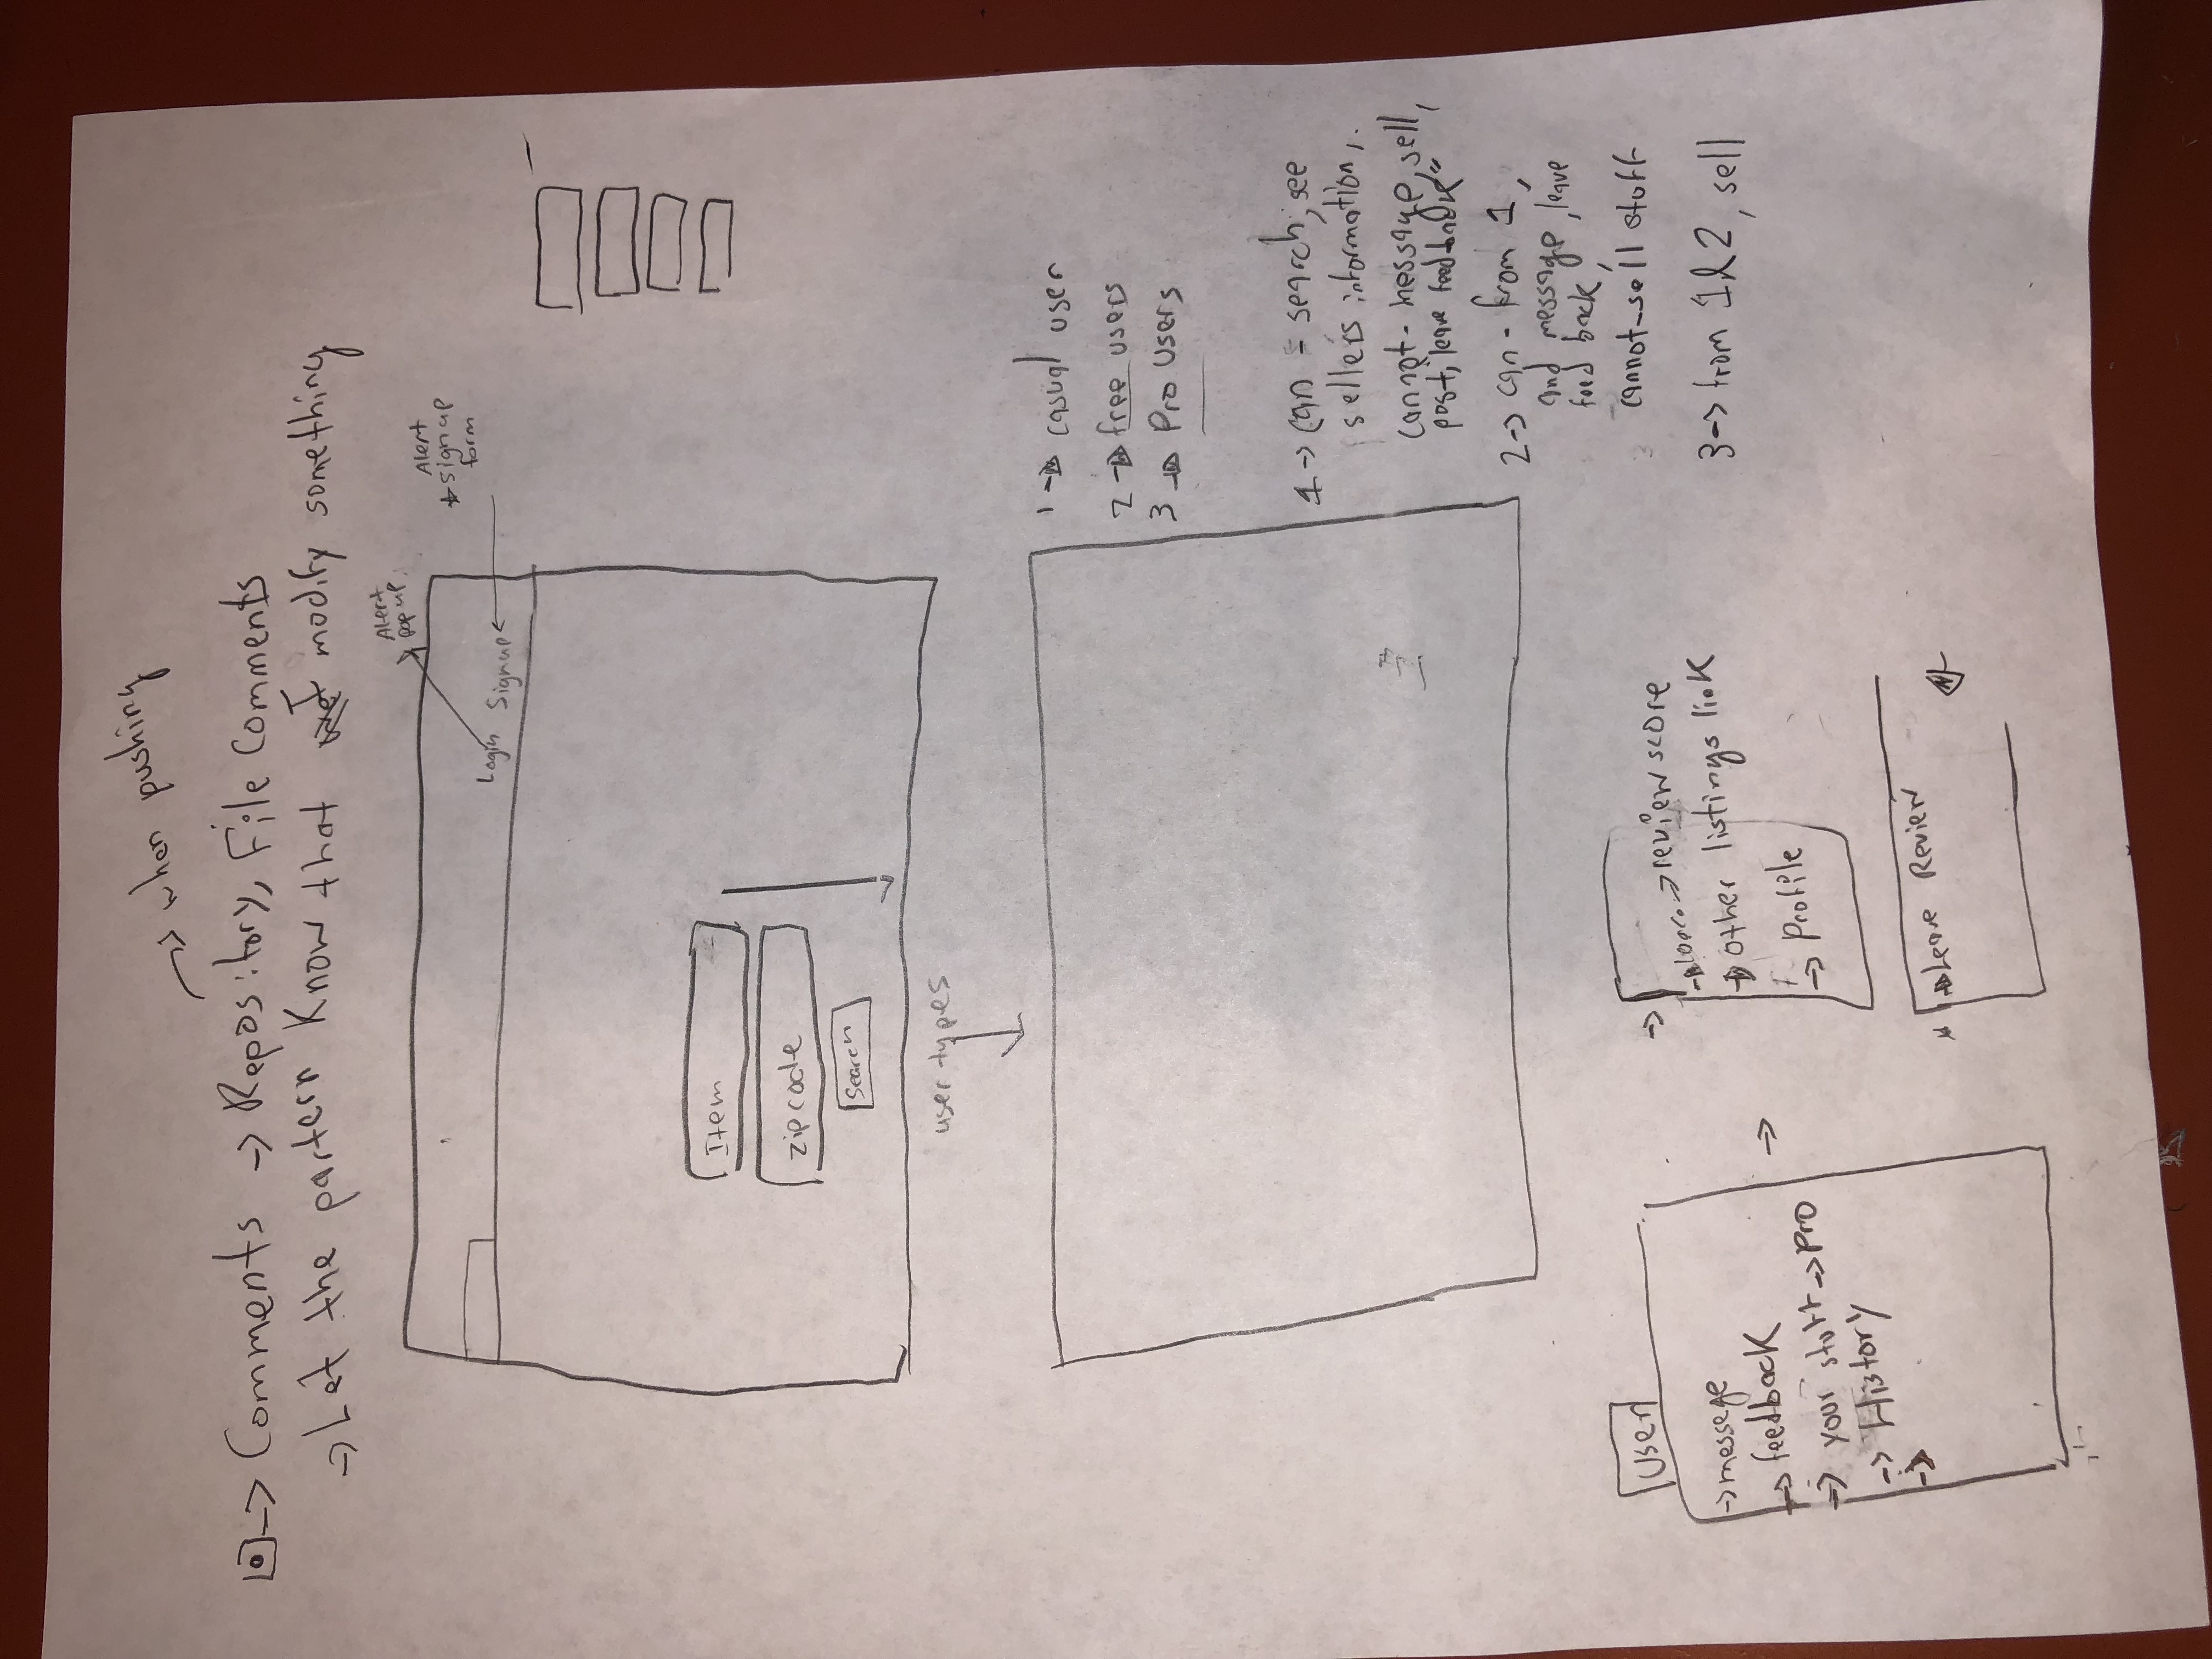 when pushing
Comments -> Repository, File Comments
-> Let the partern Know that I modify something
Alert
pop up
Alert
signup
form
Login Signup
Item
zipcode
Search
user types
1 -> casual user
2 -> free users
3 -> Pro Users
1 -> can = search, see
sellers information,
cannot - message, sell,
post, leave feedback
2 -> can - from 1,
and message, leave
feed back,
cannot - sell stuff
3 -> from 1 & 2, sell
User
-> message
-> feedback
-> your stuff -> pro
-> History
->
-> review score
-> other listings link
-> Profile
-> Leave Review